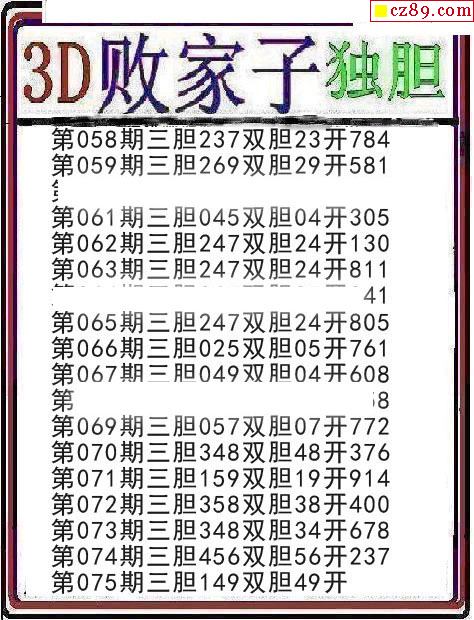 cz89.com
3D败家子独胆
第058期三胆237双胆23开784
第059期三胆269双胆29开581
第061期三胆045双胆04开305
第062期三胆247双胆24开130
第063期三胆247双胆24开811
41
第065期三胆247双胆24开805
第066期三胆025双胆05开761
第067期三胆049双胆04开608
第 8
第069期三胆057双胆07开772
第070期三胆348双胆48开376
第071期三胆159双胆19开914
第072期三胆358双胆38开400
第073期三胆348双胆34开678
第074期三胆456双胆56开237
第075期三胆149双胆49开